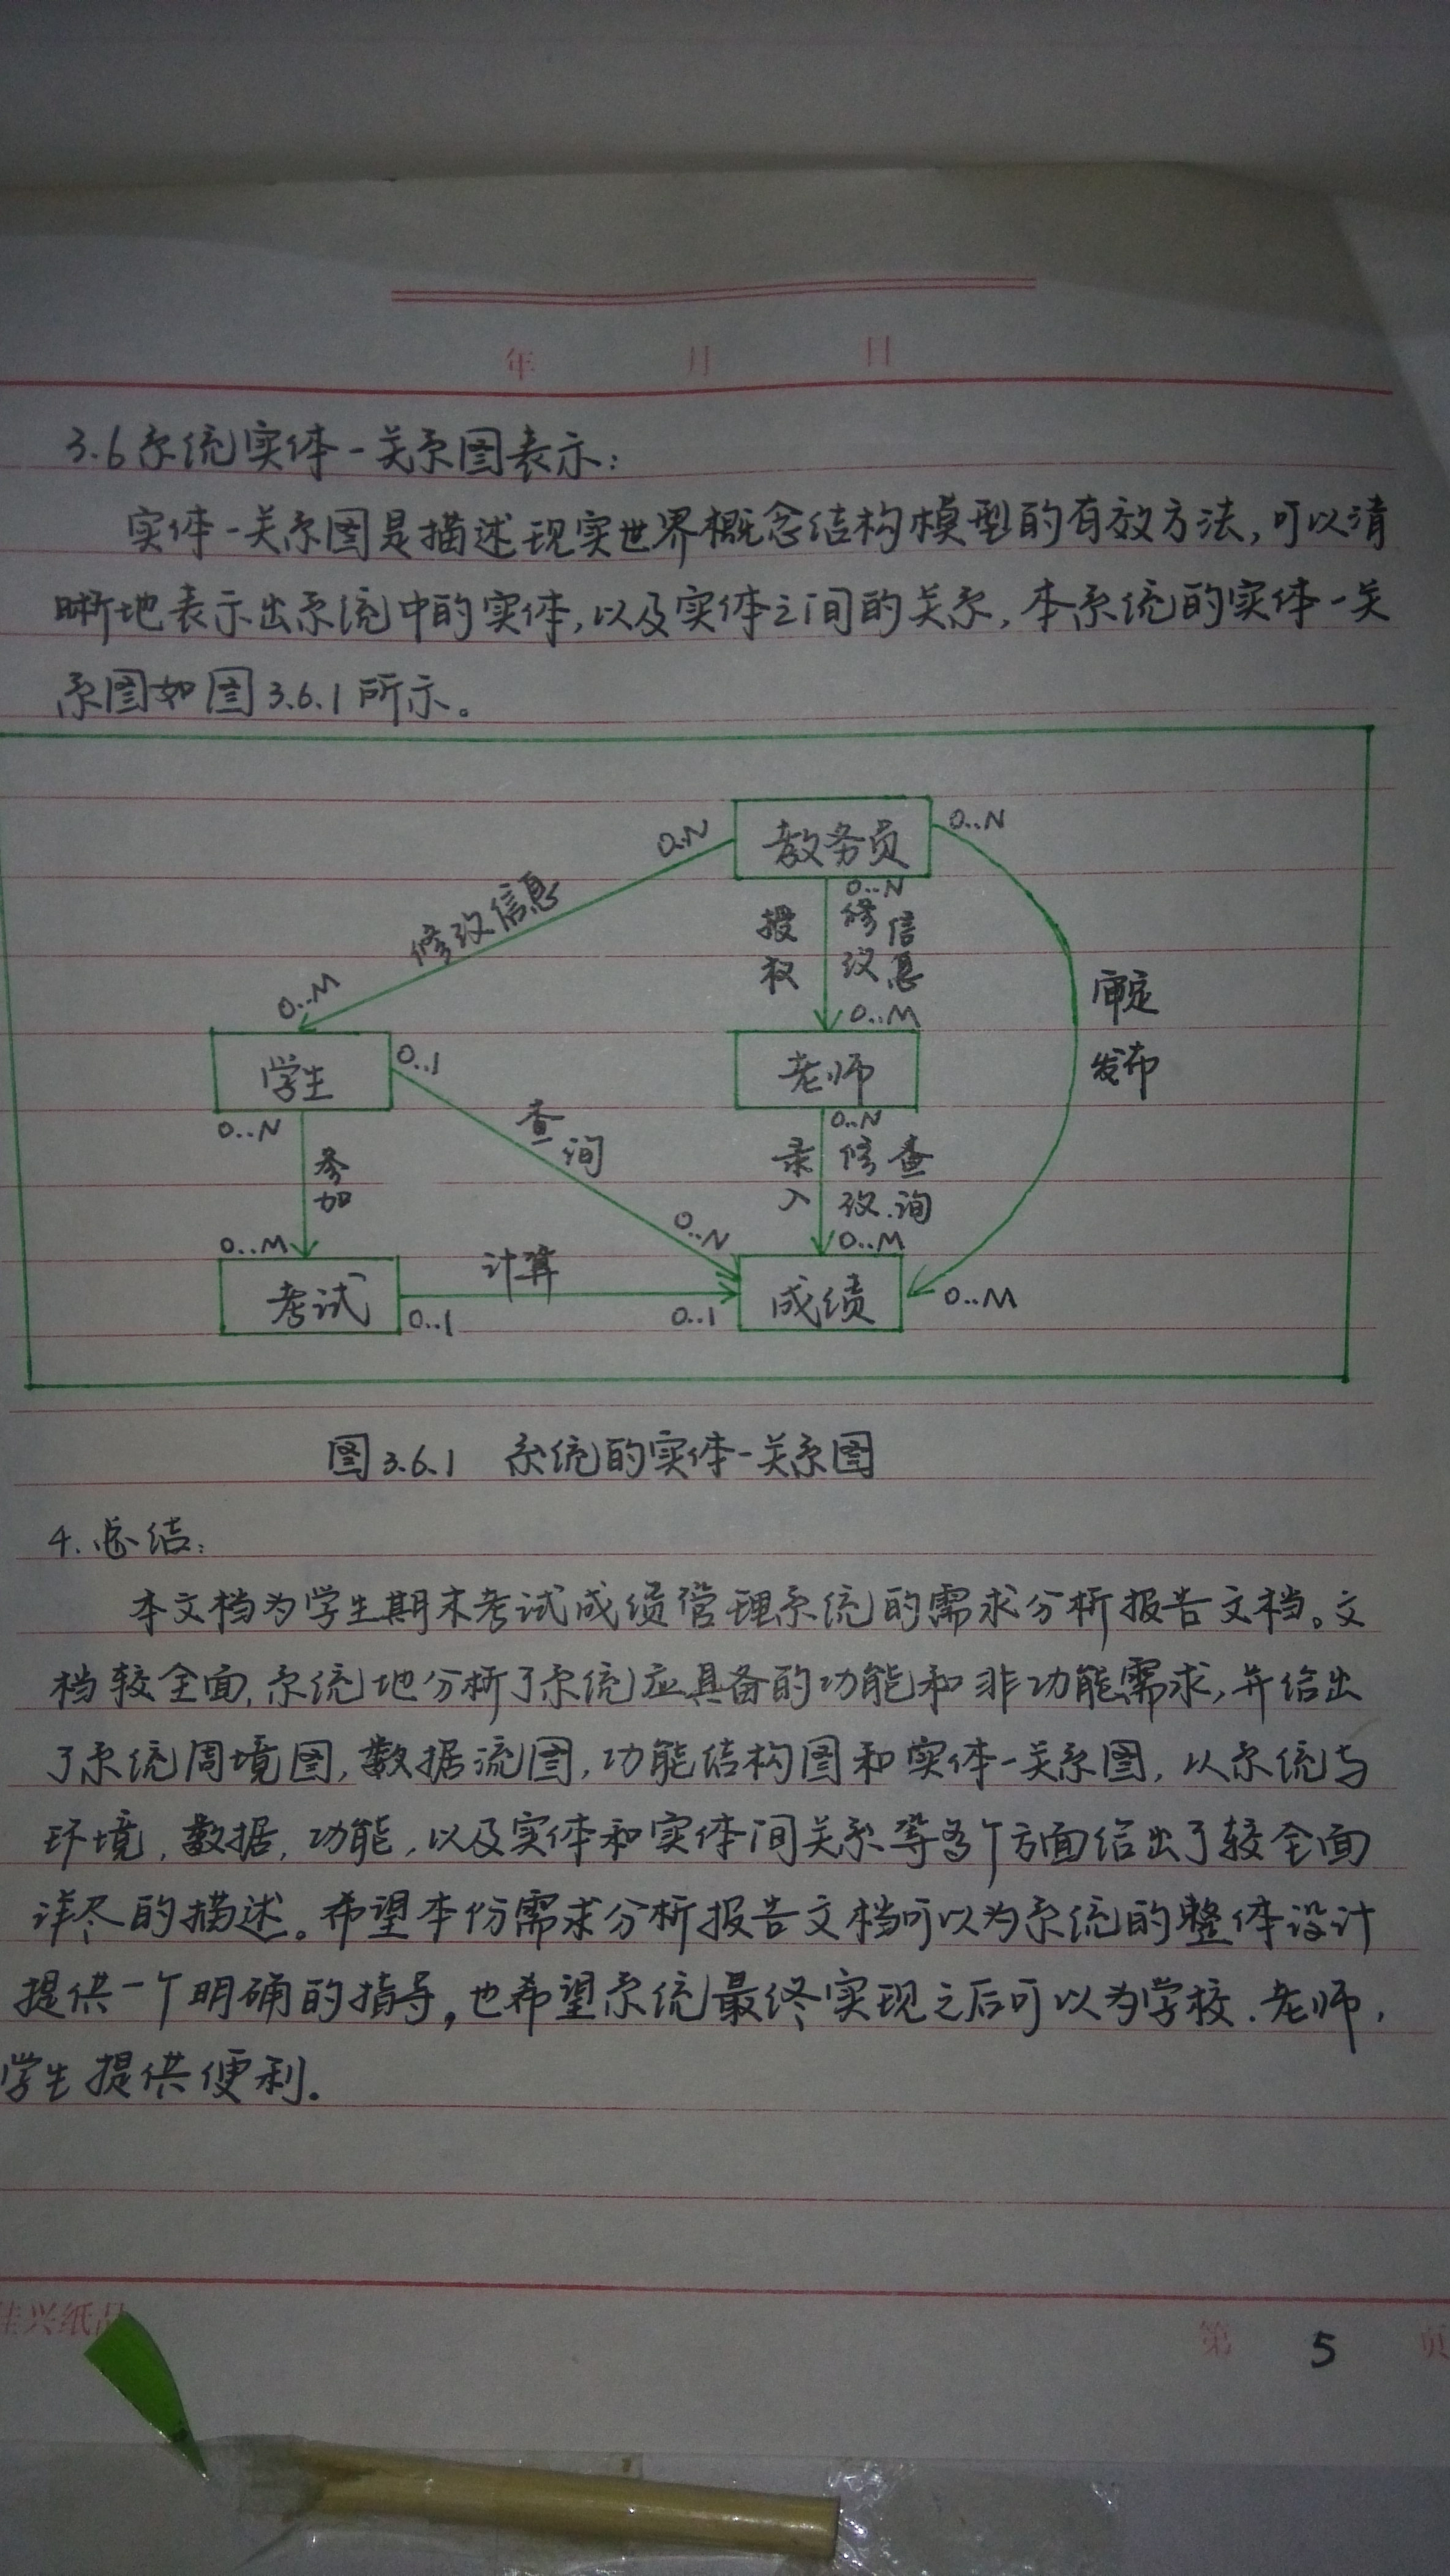 年 月 日
3.6 系统实体-关系图表示:
实体-关系图是描述现实世界概念结构模型的有效方法,可以清
晰地表示出系统中的实体,以及实体之间的关系,本系统的实体-关
系图如图3.6.1所示。
教务员
0..N
0..N
0..N
修改信息
授权
修改
信息
审定
发布
0..M
0..M
学生
0..1
老师
0..N
0..N
参加
查询
录入
修改.
查询
0..M
0..N
0..M
计算
考试
0..1
0..1
成绩
0..M
图3.6.1 系统的实体-关系图
4.总结:
本文档为学生期末考试成绩管理系统的需求分析报告文档。文
档较全面,系统地分析了系统应具备的功能和非功能需求,并给出
了系统周境图,数据流图,功能结构图和实体-关系图,以系统与
环境,数据,功能,以及实体和实体间关系等多个方面给出了较全面
详尽的描述。希望本份需求分析报告文档可以为系统的整体设计
提供一个明确的指导,也希望系统最终实现之后可以为学校.老师,
学生提供便利.
佳兴纸品
第 5 页